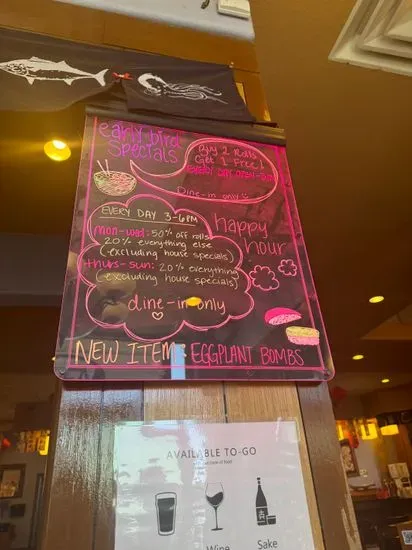 early bird
Specials
Buy 2 Rolls
Get 1 Free!
Every Day Open-3pm
Dine-in only
EVERY DAY 3-6PM
happy
hour
mon-wed: 50% off rolls
20% everything else
(-excluding house specials)
thurs-sun: 20% everything
(-excluding house specials)
dine-in only
NEW ITEM: EGGPLANT BOMBS
AVAILABLE TO-GO
Wine
Sake